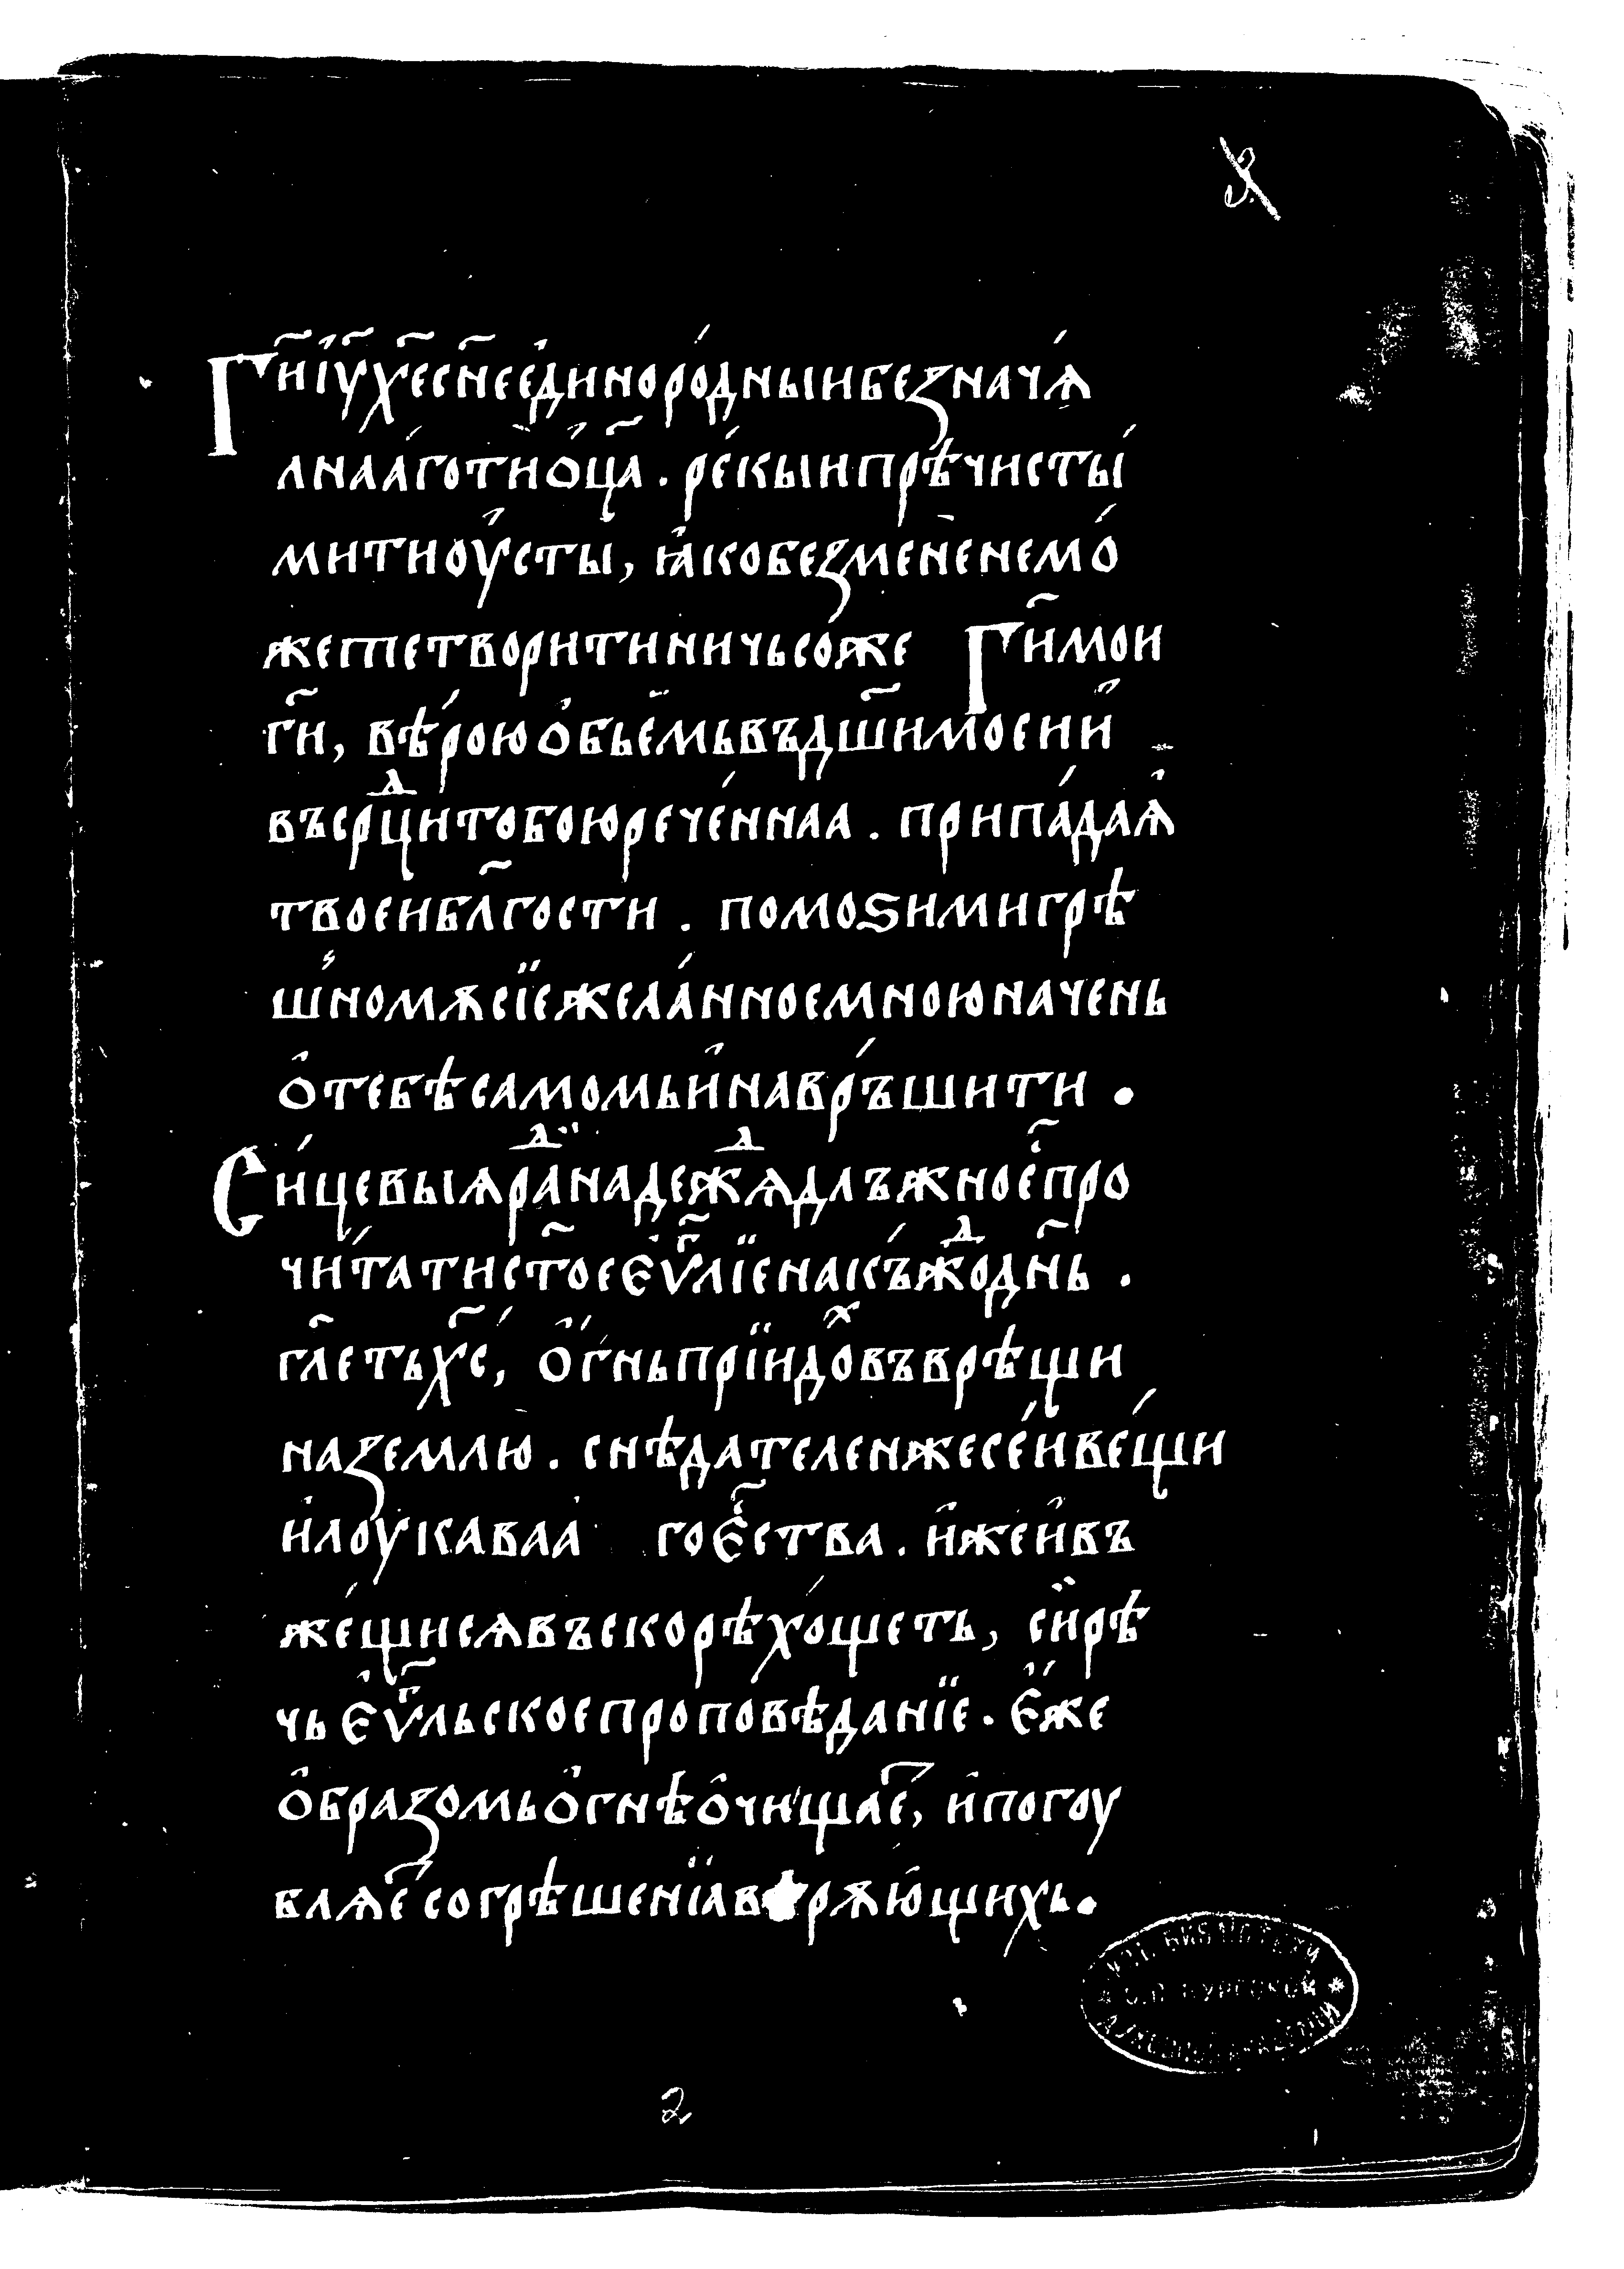 Гн҃и і҆у҃ х҃е сн҃е є҆динорóдныи безначѧ́
лнаáго ти ѻ҆ц҃а. рéкыи прѣчисты́
мити оу҆сты, ꙗ҆ко без мене не мó
жете творити ничьсоже Гн҃и мои
гн҃и, вѣ́рою ѻ҆бьемь въ дш҃и моеи и҆
въ срⷣци тобою речéннаа. припáдаѧ҆
твоеи бл҃гости. помоѕи ми грѣ
шномѫ сїе желáнное мною начень
ѻ҆ тебѣ самомь и҆ наврь́шити.
Си́цевыѧ раⷣ надежⷣѧ длъжно є҆с҃ про
чи́тати ст҃ое є҆ѵⷢ҇лїе на къ́жⷣо дн҃ь.
гл҃еть х҃с, ѻ҆́гнь прїидоⷯ въврѣщи
на землю. снѣдателен же сéи вéщи
и҆ лоукаваа го є҆с҃ства. и҆же и҆ въ
жéщи сѧ въскорѣ хóщеть, си́рѣ
чь є҆ѵⷢ҇льское проповѣданїе. є҆́же
ѻ҆бразомь ѻ҆гнѣ ѻ҆чищаеⷮ, и҆ погоу
блѧеⷮ согрѣшенїа в рѧю́щихь.
2